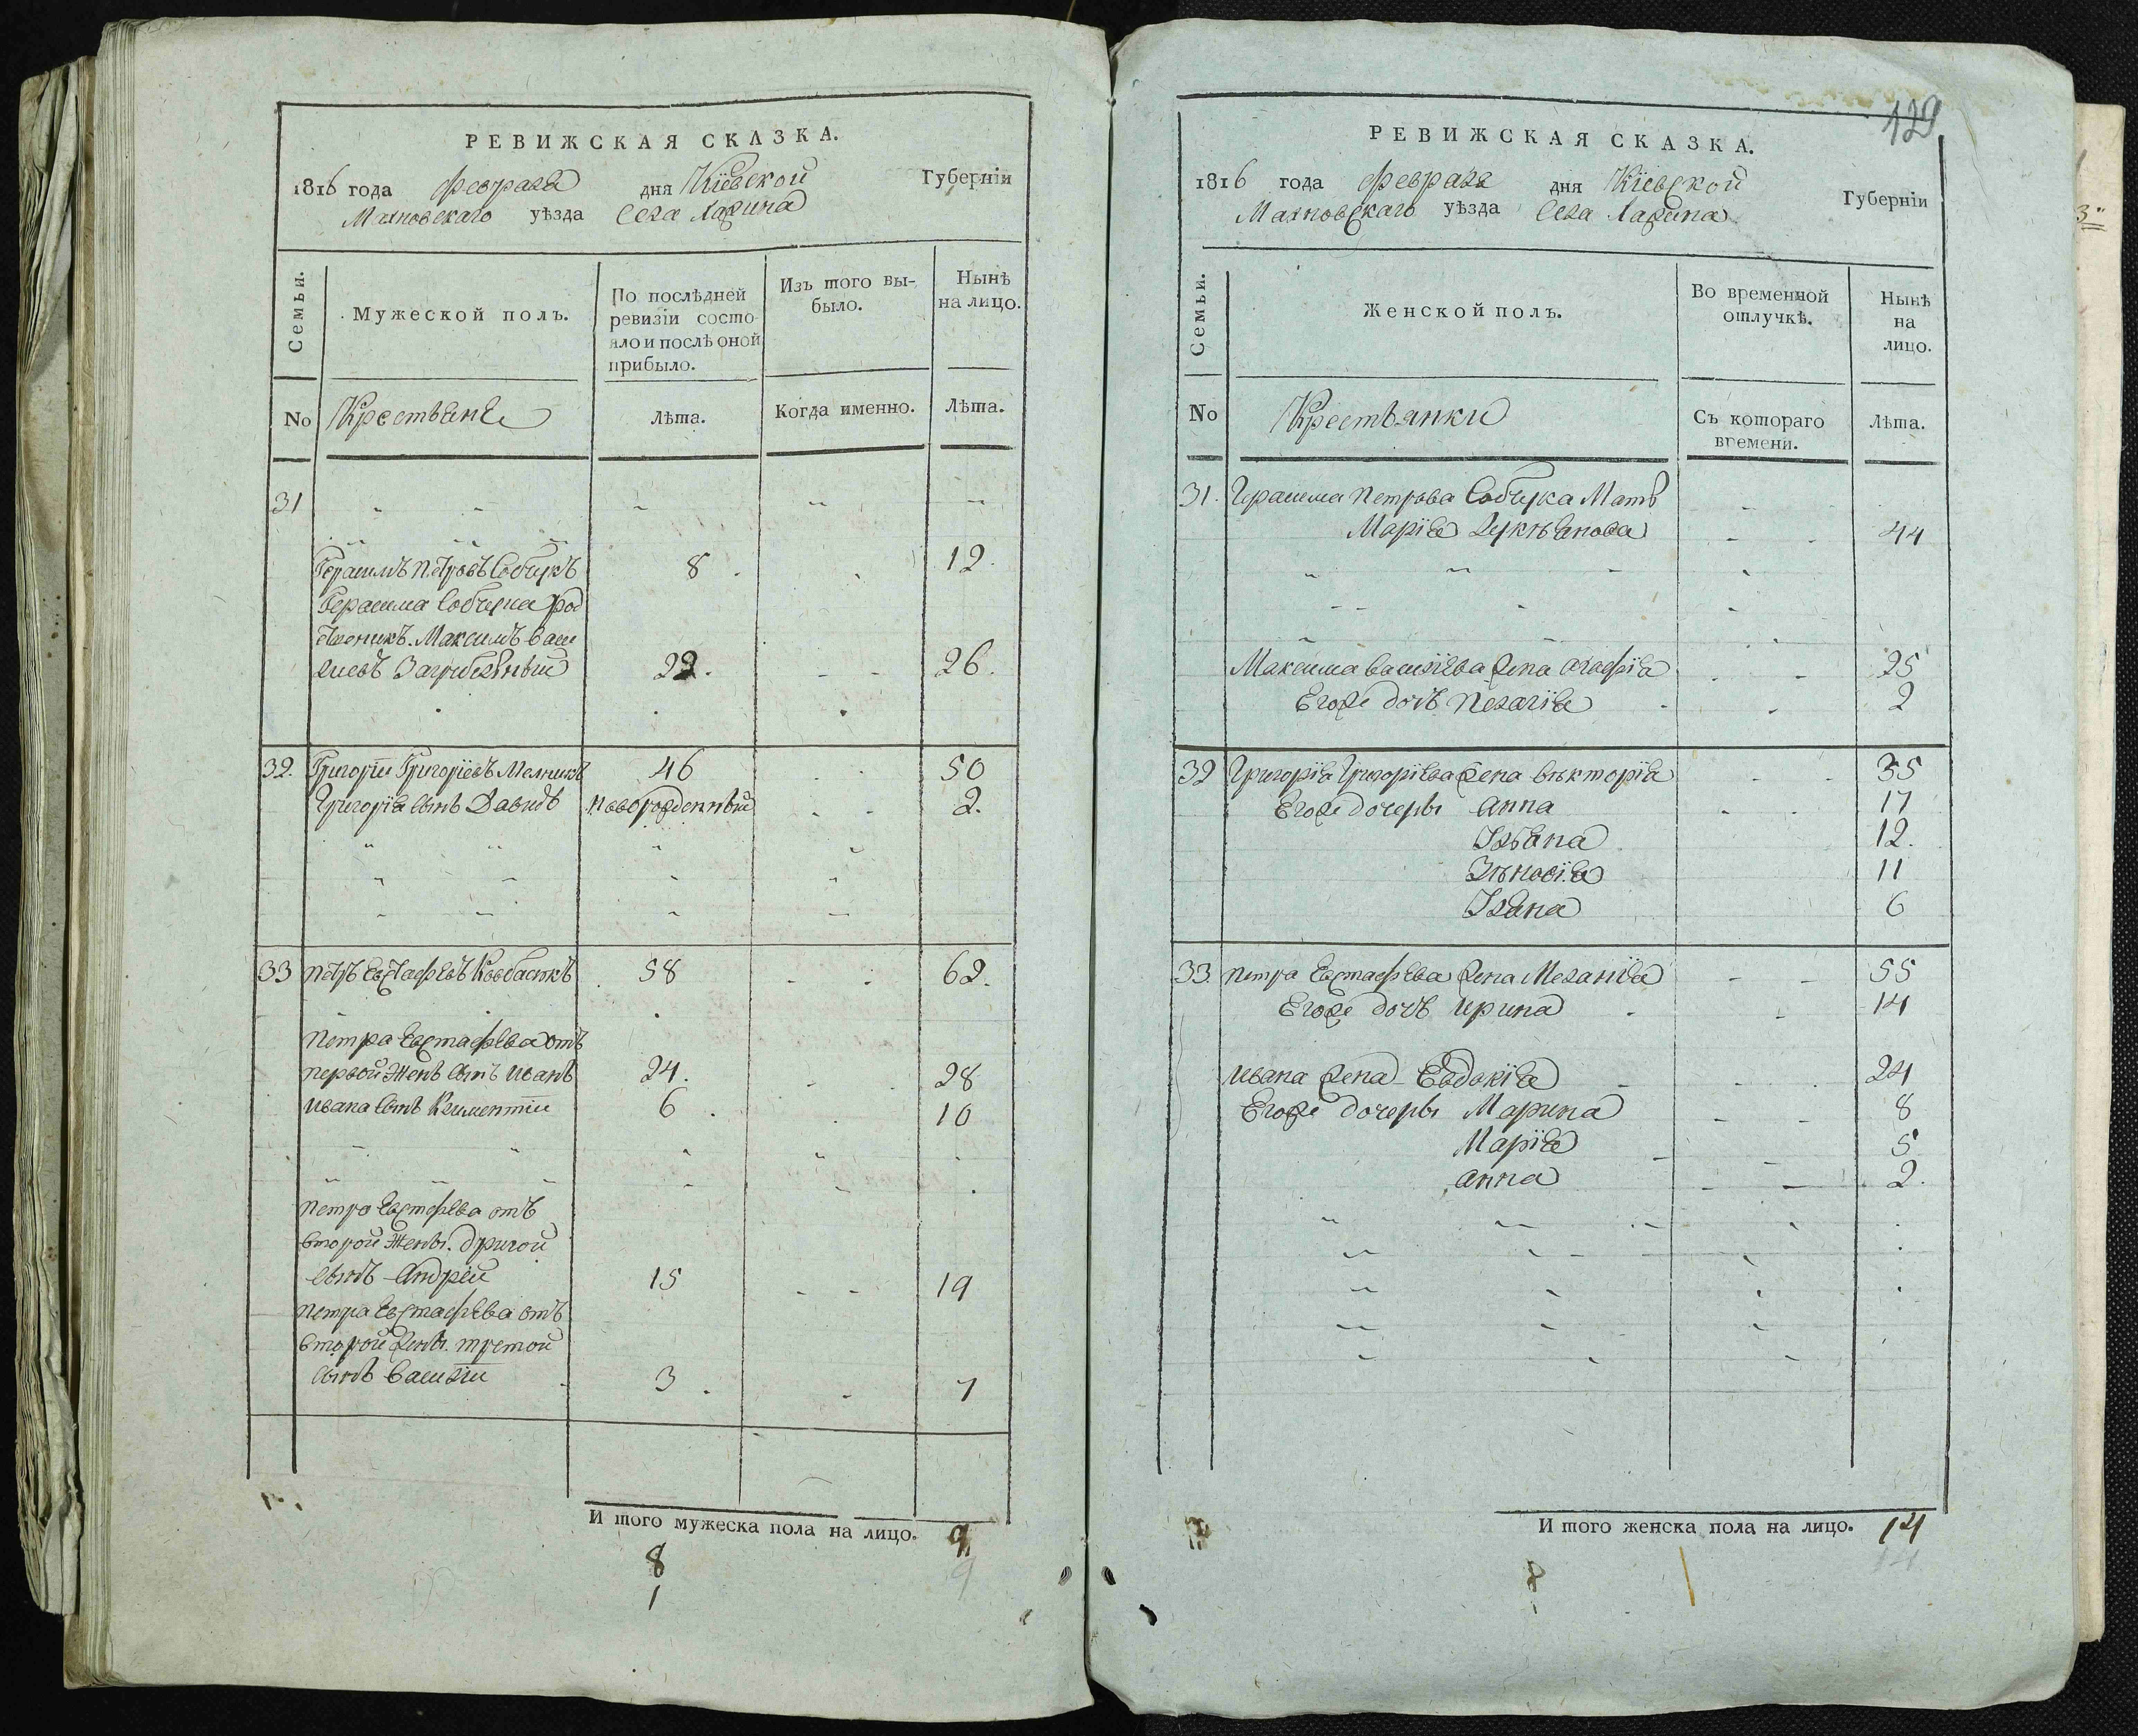 РЕВИЖСКАЯ СКАЗКА.
1816 года февраля дня Кіевской Губерніи
Махновскаго уѣзда Села
Семьи.
Мужеской полъ.
По послѣдней ревизіи состояло и послѣ оной прибыло.
Изъ того выбыло.
Нынѣ на лицо.
No Крестьяне
Лѣта.
Когда именно.
Лѣта.
31
Герасимъ Петровъ Собчукъ 8 12
Герасима Собчука род
ственикъ Максимъ Васи
лиевъ 22. 26.
32. Григорій Григоріевъ Мелникъ 46 50
Григорія сынъ Давидъ новорожденный 2.
33 Петръ Евстафіевъ 58 62.
Петра Евстафіева отъ
первой жены сынъ Иванъ 24. 28
Ивана сынъ Климентій 6 10
Петра Евстафіева отъ
второй жены другой
сынъ Андрей 15 19
Петра Евстафіева отъ
второй жены третой
сынъ Василій 3 7
И того мужеска пола на лицо. 9
8 9
1
129
РЕВИЖСКАЯ СКАЗКА.
1816 года февраля дня Кіевской Губерніи
Махновскаго уѣзда Села
Семьи.
Женской полъ.
Во временной отлучкѣ.
Нынѣ на лицо.
No Крестьянки
Съ котораго времени.
Лѣта.
31. Герасима Петрова Собчука Мать
Марія Лукіянова 44
Максима Василіева жена Агафія 25
Его же дочь Пелагія 2
32 Григорія Григоріева жена Викторія 35
Его же дочеры Анна 17
Уліяна 12.
Зѣновія 11
Уляна 6
33. Петра Евстафіева жена Меланія 55
Его же дочь Ирина 14
Ивана жена Евдокія 24
Его же дочеры Марина 8
Марія 5
Анна 2.
И того женска пола на лицо. 14
14